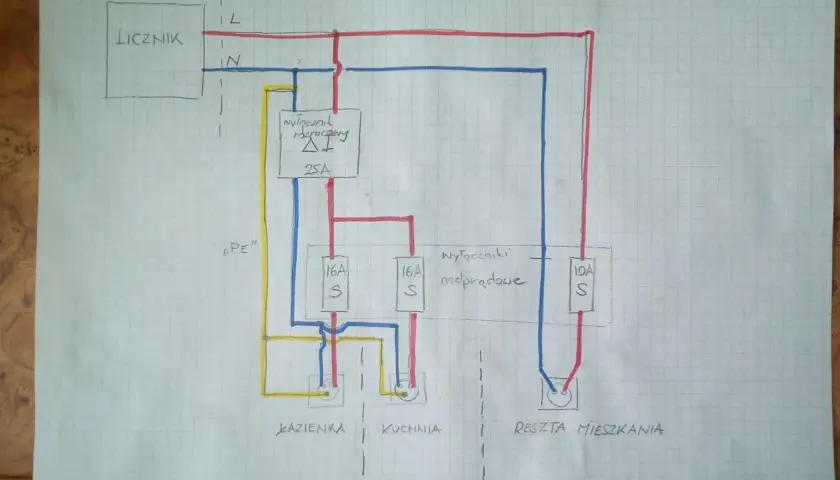 LICZNIK
L
N
wyłącznik
różnicowy
ΔI
25A
„PE"
wyłączniki
nadprądowe
16A
S
16A
S
10A
S
ŁAZIENKA
KUCHNIA
RESZTA MIESZKANIA